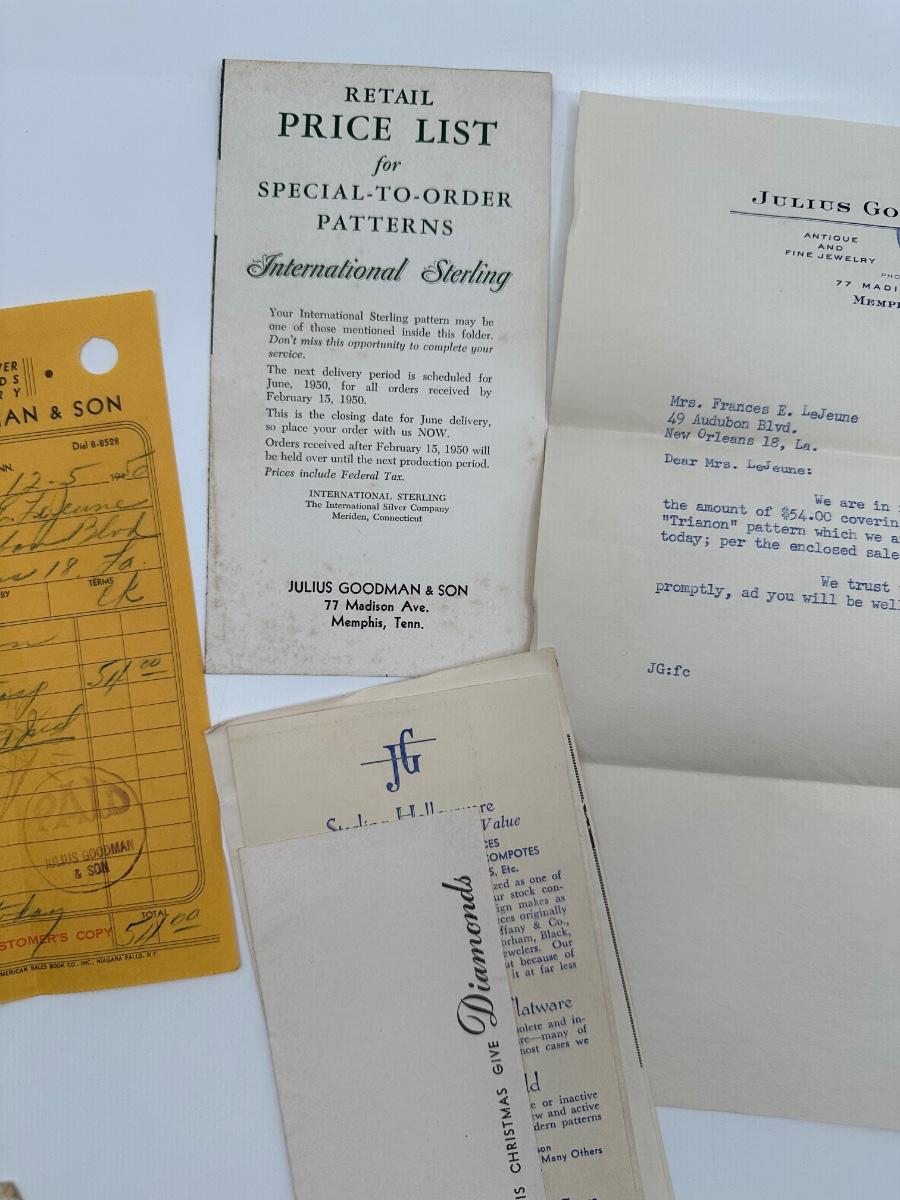 RETAIL
PRICE LIST
for
SPECIAL-TO-ORDER
PATTERNS
International Sterling
Your International Sterling pattern may be
one of those mentioned inside this folder.
Don't miss this opportunity to complete your
service.
The next delivery period is scheduled for
June, 1950, for all orders received by
February 15, 1950.
This is the closing date for June delivery,
so place your order with us NOW.
Orders received after February 15, 1950 will
be held over until the next production period.
Prices include Federal Tax.
INTERNATIONAL STERLING
The International Silver Company
Meriden, Connecticut
JULIUS GOODMAN & SON
77 Madison Ave.
Memphis, Tenn.
JULIUS GO
ANTIQUE
AND
FINE JEWELRY
PHO
77 MADI
MEMP
Mrs. Frances E. LeJeune
49 Audubon Blvd.
New Orleans 18, La.
Dear Mrs. LeJeune:
We are in
the amount of $54.00 coverin
"Trianon" pattern which we a
today; per the enclosed sale
We trust
promptly, ad you will be wel
JG:fc
VER
DS
RY
MAN & SON
Dial 8-8528
NN.
12-5 1950
E. LeJeune
Blvd
18, La.
BY
TERMS
ck
54 00
JULIUS GOODMAN
& SON
today
TOTAL
54 00
STOMER'S COPY
AMERICAN SALES BOOK CO., INC., NIAGARA FALLS, N.Y.
JG
Sterling Hollowware
Value
CES
COMPOTES
S, Etc.
zed as one of
ur stock con-
ign makes as
ces originally
ffany & Co.,
orham, Black,
ewelers. Our
at because of
it at far less
latware
olete and in-
re—many of
most cases we
ld
e or inactive
ew and active
dern patterns
son
Many Others
IS CHRISTMAS GIVE Diamonds